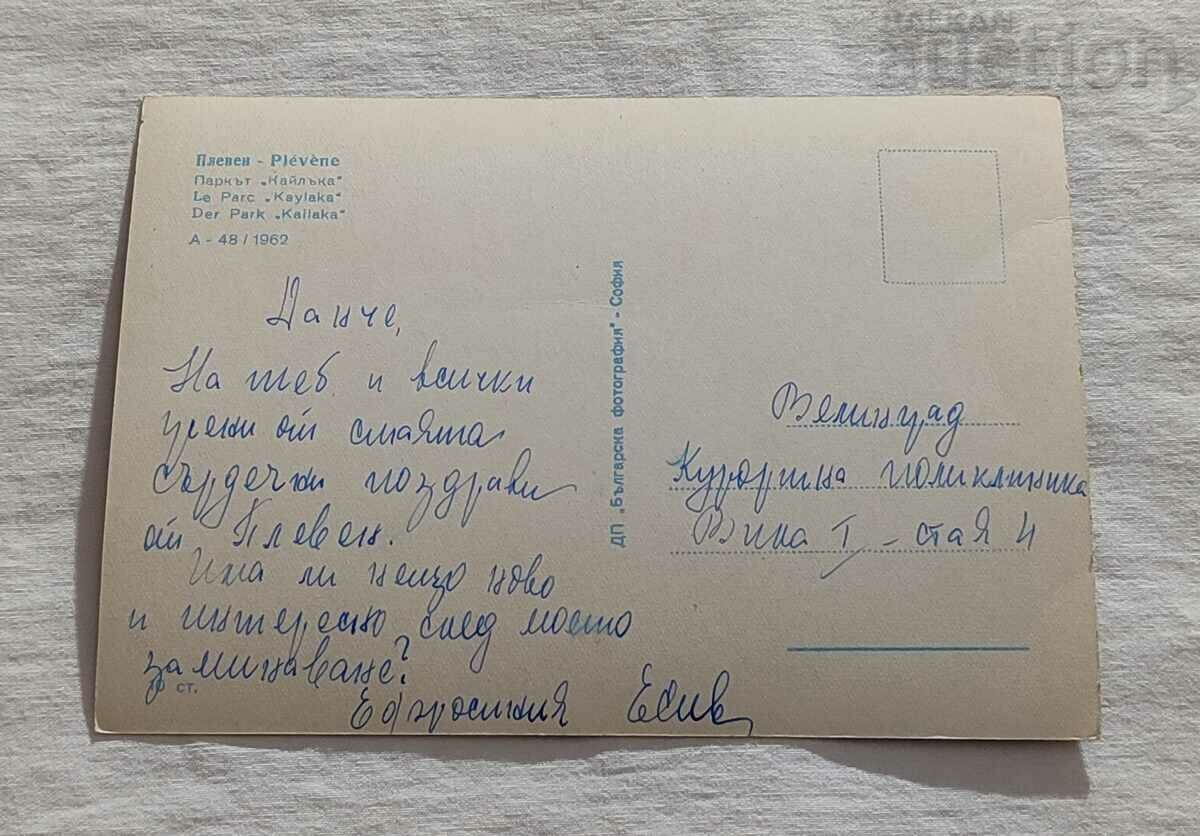 BALKAN
auction
Плевен - Plévène
Паркът „Кайлъка“
Le Parc „Kaylaka“
Der Park „Kailaka“
А - 48 / 1962
Данче,
На теб и всички
от стаята
сърдечни поздрави
от Плевен.
Има ли нещо ново
и интересно след моето
заминаване?
Ефросиния
10 ст.
ДП „Българска фотография“ - София
Велинград
Курортна поликлиника
Вила I - стая 4